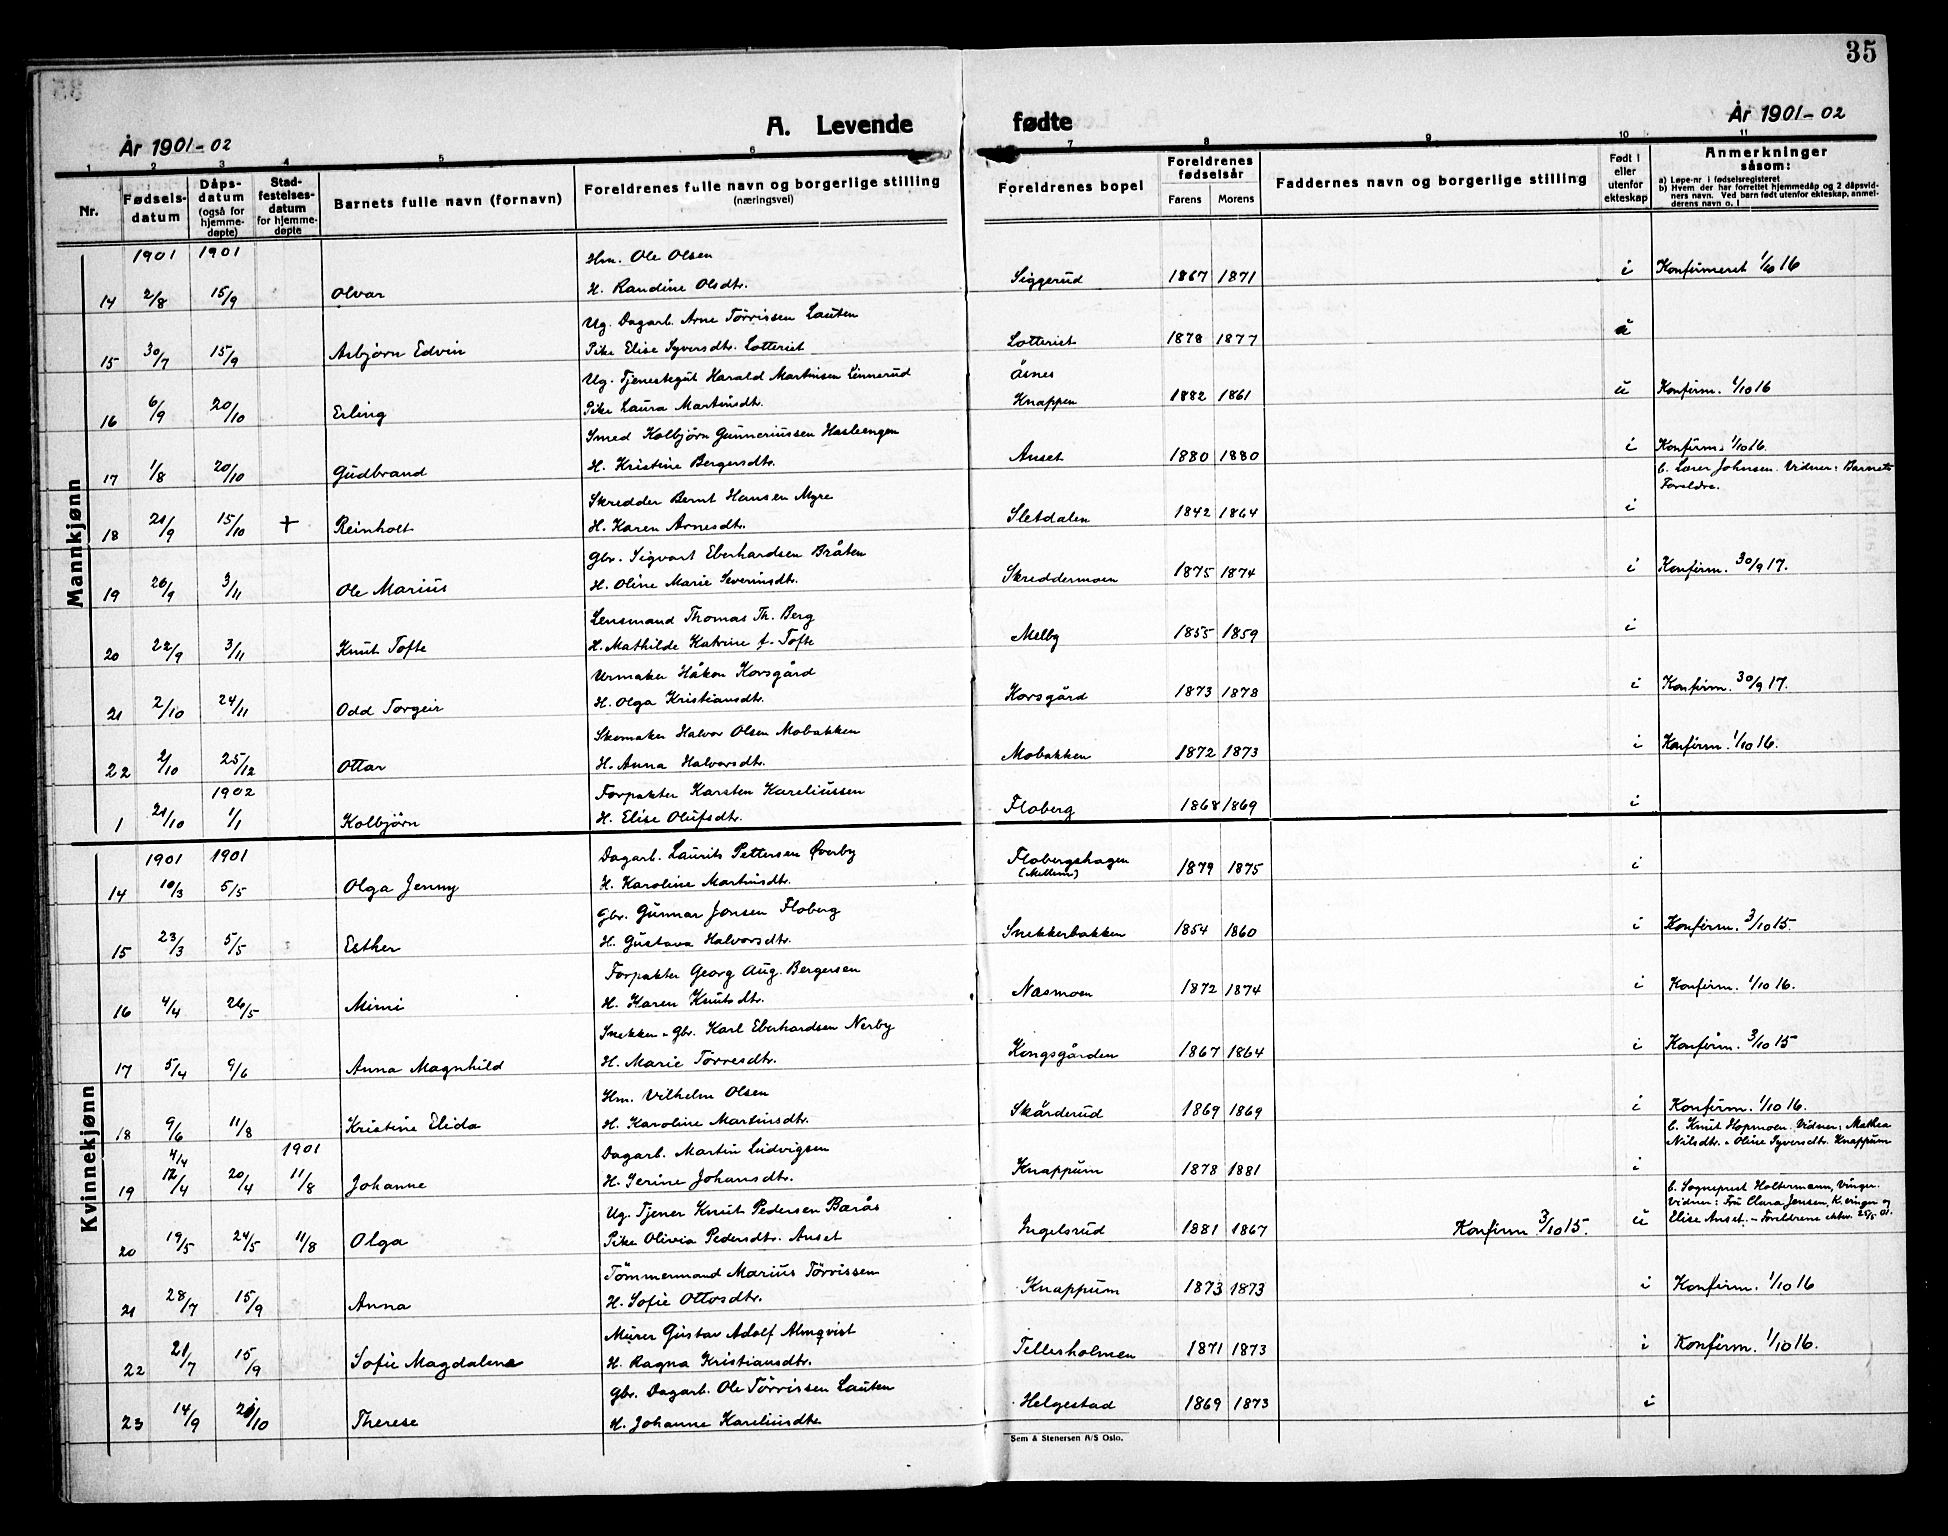 35
A. Levende fødte
År 1901-02
År 1901-02
1 2 3 4 5 6 7 8 9 10 11
Nr.
Fødselsdatum
Dåpsdatum (også for hjemmedøpte)
Stadfestelsesdatum for hjemmedøpte
Barnets fulle navn (fornavn)
Foreldrenes fulle navn og borgerlige stilling
(næringsvei)
Foreldrenes bopel
Foreldrenes fødselsår
Farens Morens
Faddernes navn og borgerlige stilling
Født i eller utenfor ekteskap
Anmerkninger
såsom:
a) Løpe-nr i fødselsregisteret
b) Hvem der har forrettet hjemmedåp og 2 dåpsvidners navn. Ved barn født utenfor ekteskap, anmelderens navn o. l
Mannkjønn
1901 1901
Hm. Ole Olsen
14 2/8 15/9 Olvar H. Randine Olsdtr. Siggerud 1867 1871 i Konfirmeret 1/10 16
Ug. Dagarb. Arne Törrissen Lauten
15 30/7 15/9 Asbjörn Edvin Pike Elise Syversdtr. Lotteriet Lotteriet 1878 1877 u
Ug. Tjenestegut Harald Martinsen Linnerud Åsnes
16 6/9 20/10 Erling Pike Laura Martinsdtr. Knappen 1882 1861 u Konfirm. 1/10 16
Smed Kolbjörn Gunneriussen Hasleengen
17 1/8 20/10 Gudbrand H. Kristine Bergersdtr. Anset 1880 1880 i Konfirm. 1/10 16.
b. Lærer Johnsen. Vidner: Barnets Foreldre.
Skredder Bernt Hansen Myre
18 21/9 15/10 + Reinholt H. Karen Arnesdtr. Sletdalen 1842 1864 i
Gbr. Sigvart Eberhardsen Bråten
19 26/9 3/11 Ole Marius H. Oline Marie Severinsdtr. Skreddermoen 1875 1874 i Konfirm. 30/9 17.
Lensmand Thomas Th. Berg
20 22/9 3/11 Knut Tofte H. Mathilde Katrine f. Tofte Melby 1855 1859 i
Urmaker Håkon Korsgård
21 2/10 24/11 Odd Torgeir H. Olga Kristiansdtr. Korsgård 1873 1878 i Konfirm. 30/9 17.
Skomaker Halvor Olsen Mobakken
22 2/10 25/12 Ottar H. Anna Halvorsdtr. Mobakken 1872 1873 i Konfirm. 1/10 16.
1902 Forpakter Karsten Kareliussen
1 21/10 1/1 Kolbjörn H. Elise Olufsdtr. Floberg 1868 1869 i
Kvinnekjønn
1901 1901 Dagarb. Laurits Pettersen Øverby
14 10/3 5/5 Olga Jenny H. Karoline Martinsdtr. Flobergshagen (Mellem) 1879 1875 i
Gbr. Gunnar Jonsen Floberg
15 23/3 5/5 Esther H. Gustava Halvorsdtr. Snekkerbakken 1854 1860 i Konfirm. 3/10 15.
Forpakter Georg Aug. Bergersen
16 4/4 26/5 Mimi H. Karen Knutsdtr. Næsmoen 1872 1874 i Konfirm. 1/10 16.
Snekker - Gbr. Karl Eberhardsen Nerby
17 5/4 9/6 Anna Magnhild H. Marie Törresdtr. Kongsgården 1867 1864 i Konfirm. 3/10 15
Hm. Vilhelm Olsen
18 9/6 11/8 Kristine Elida H. Karoline Martinsdtr. Skårderud 1869 1869 i Konfirm. 1/10 16.
b. Knut Hopmoen. Vidner: Mathea Nilsdtr. - Oline Syversdtr. Knappum
4/4 1901 Dagarb. Martin Ludvigsen
19 12/4 20/4 11/8 Johanne H. Serine Johansdtr. Knappum 1878 1881 i
b. Sogneprest Holtermann, Vinger. Vidner: Fru Clara Jensen, K.vinger og Elise Anset. - Foreldrene ektev. 25/5 01.
Ug. Tjener Knut Pedersen Barås
20 19/5 24/5 11/8 Olga Pike Olivia Pedersdtr. Anset Ingelsrud 1881 1867 Konfirm 3/10 15. u
Tömmermand Marius Törrissen
21 28/7 15/9 Anna H. Sofie Ottosdtr. Knappum 1873 1873 i Konfirm. 1/10 16
Murer Gustav Adolf Almqvist
22 21/7 15/9 Sofie Magdalene H. Ragna Kristiansdtr. Tellesholmen 1871 1873 i Konfirm. 1/10 16.
Gbr. Dagarb. Ole Törrissen Lauten
23 14/9 20/10 Therese H. Johanne Karelinsdtr. Helgestad 1869 1873 i
Sem & Stenersen A/S Oslo.